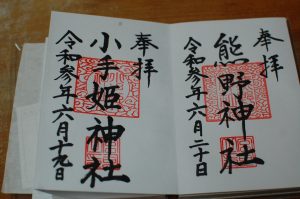 奉拝
熊野神社
令和参年六月二十日
奉拝
小手姫神社
令和参年六月十九日